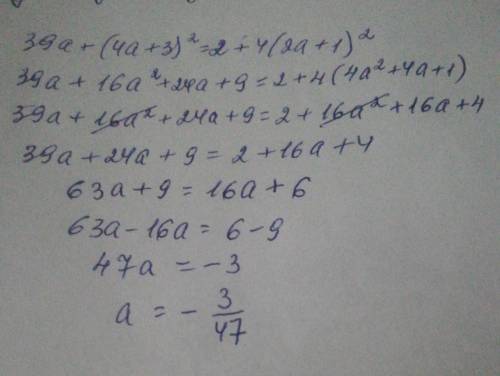 39a + (4a+3)² = 2 + 4(2a+1)²
39a + 16a² + 24a + 9 = 2 + 4(4a² + 4a + 1)
39a + 16a² + 24a + 9 = 2 + 16a² + 16a + 4
39a + 24a + 9 = 2 + 16a + 4
63a + 9 = 16a + 6
63a - 16a = 6 - 9
47a = -3
a = - 3/47